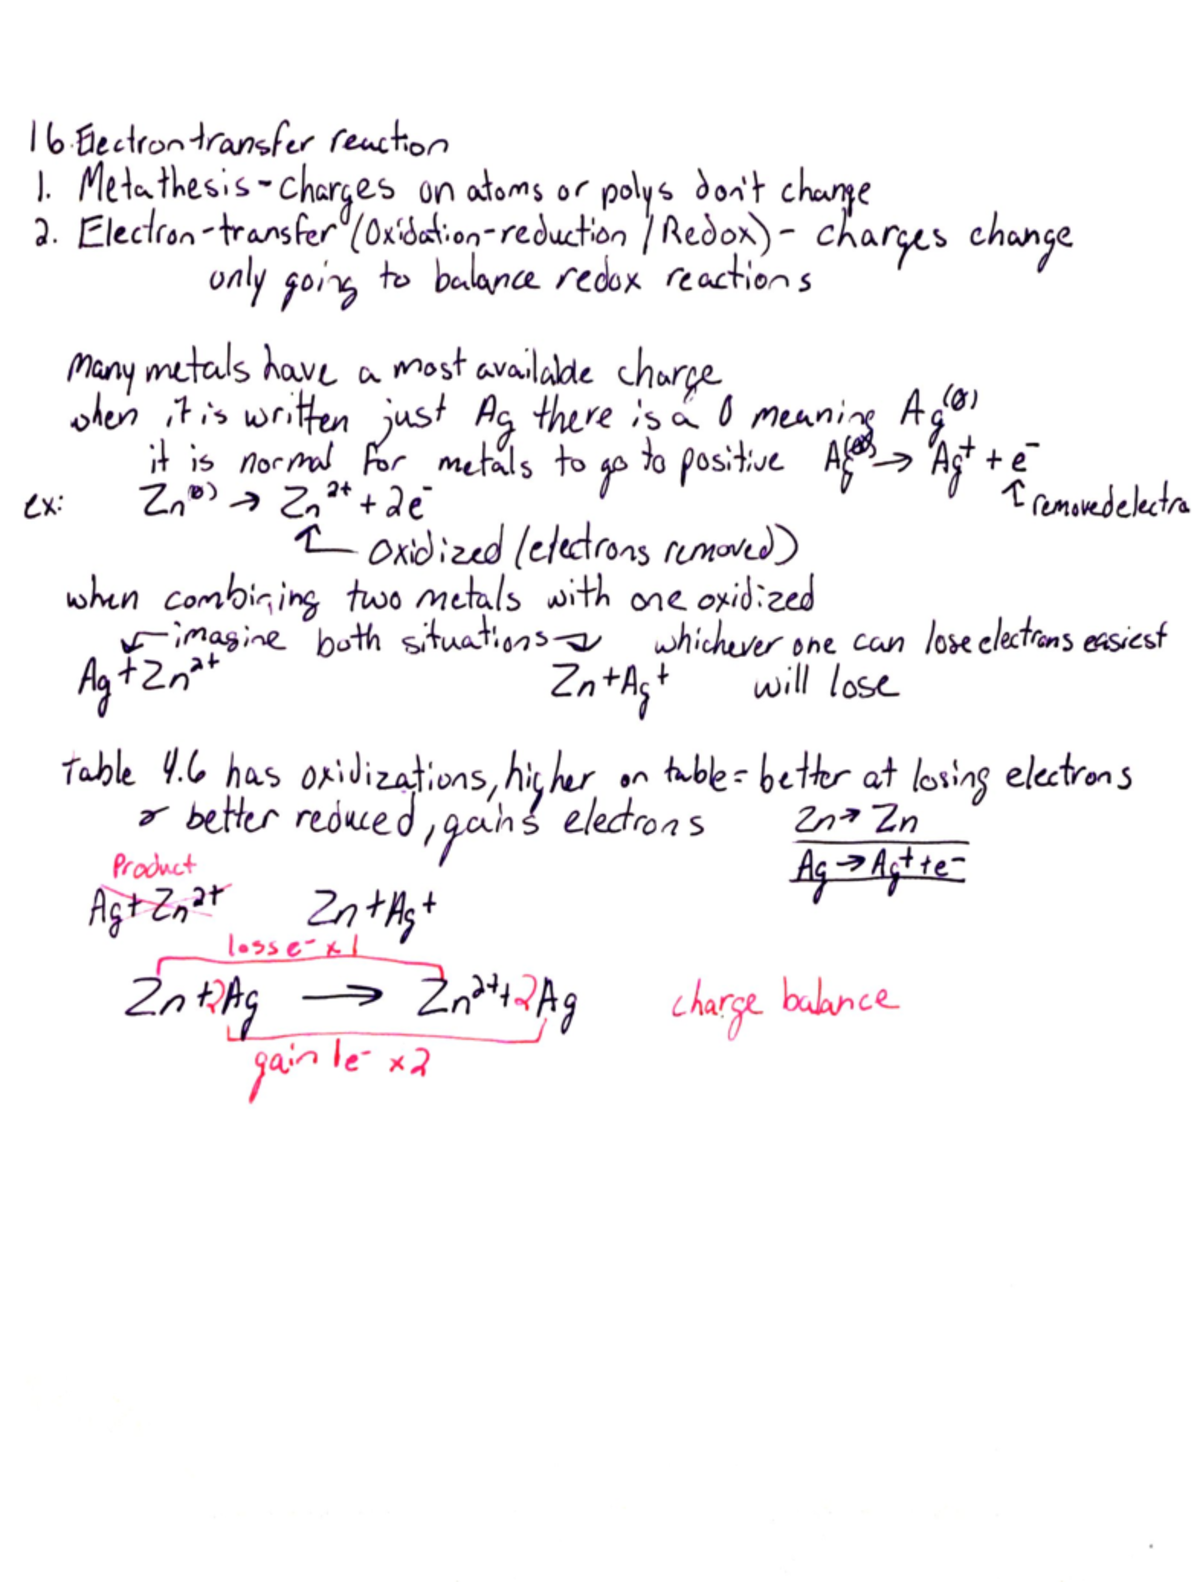 16. Electron transfer reaction
1. Metathesis - charges on atoms or polys don't change
2. Electron-transfer (Oxidation-reduction / Redox) - charges change
only going to balance redox reactions
Many metals have a most available charge
when it is written just Ag there is a 0 meaning Ag⁽⁰⁾
it is normal for metals to go to positive Ag⁽⁰⁾ → Ag⁺ + e⁻
ex: Zn⁽⁰⁾ → Zn²⁺ + 2e⁻ ↑ removed electra
↑ oxidized (electrons removed)
when combining two metals with one oxidized
↙ imagine both situations ↘ whichever one can lose electrons easiest
Ag + Zn²⁺ Zn + Ag⁺ will lose
table 4.6 has oxidizations, higher on table = better at losing electrons
or better reduced, gains electrons Zn → Zn
Product Ag → Ag⁺ + e⁻
Ag + Zn²⁺ Zn + Ag⁺
loss e⁻ x 1
Zn + 2Ag → Zn²⁺ + 2Ag charge balance
gain 1e⁻ x 2